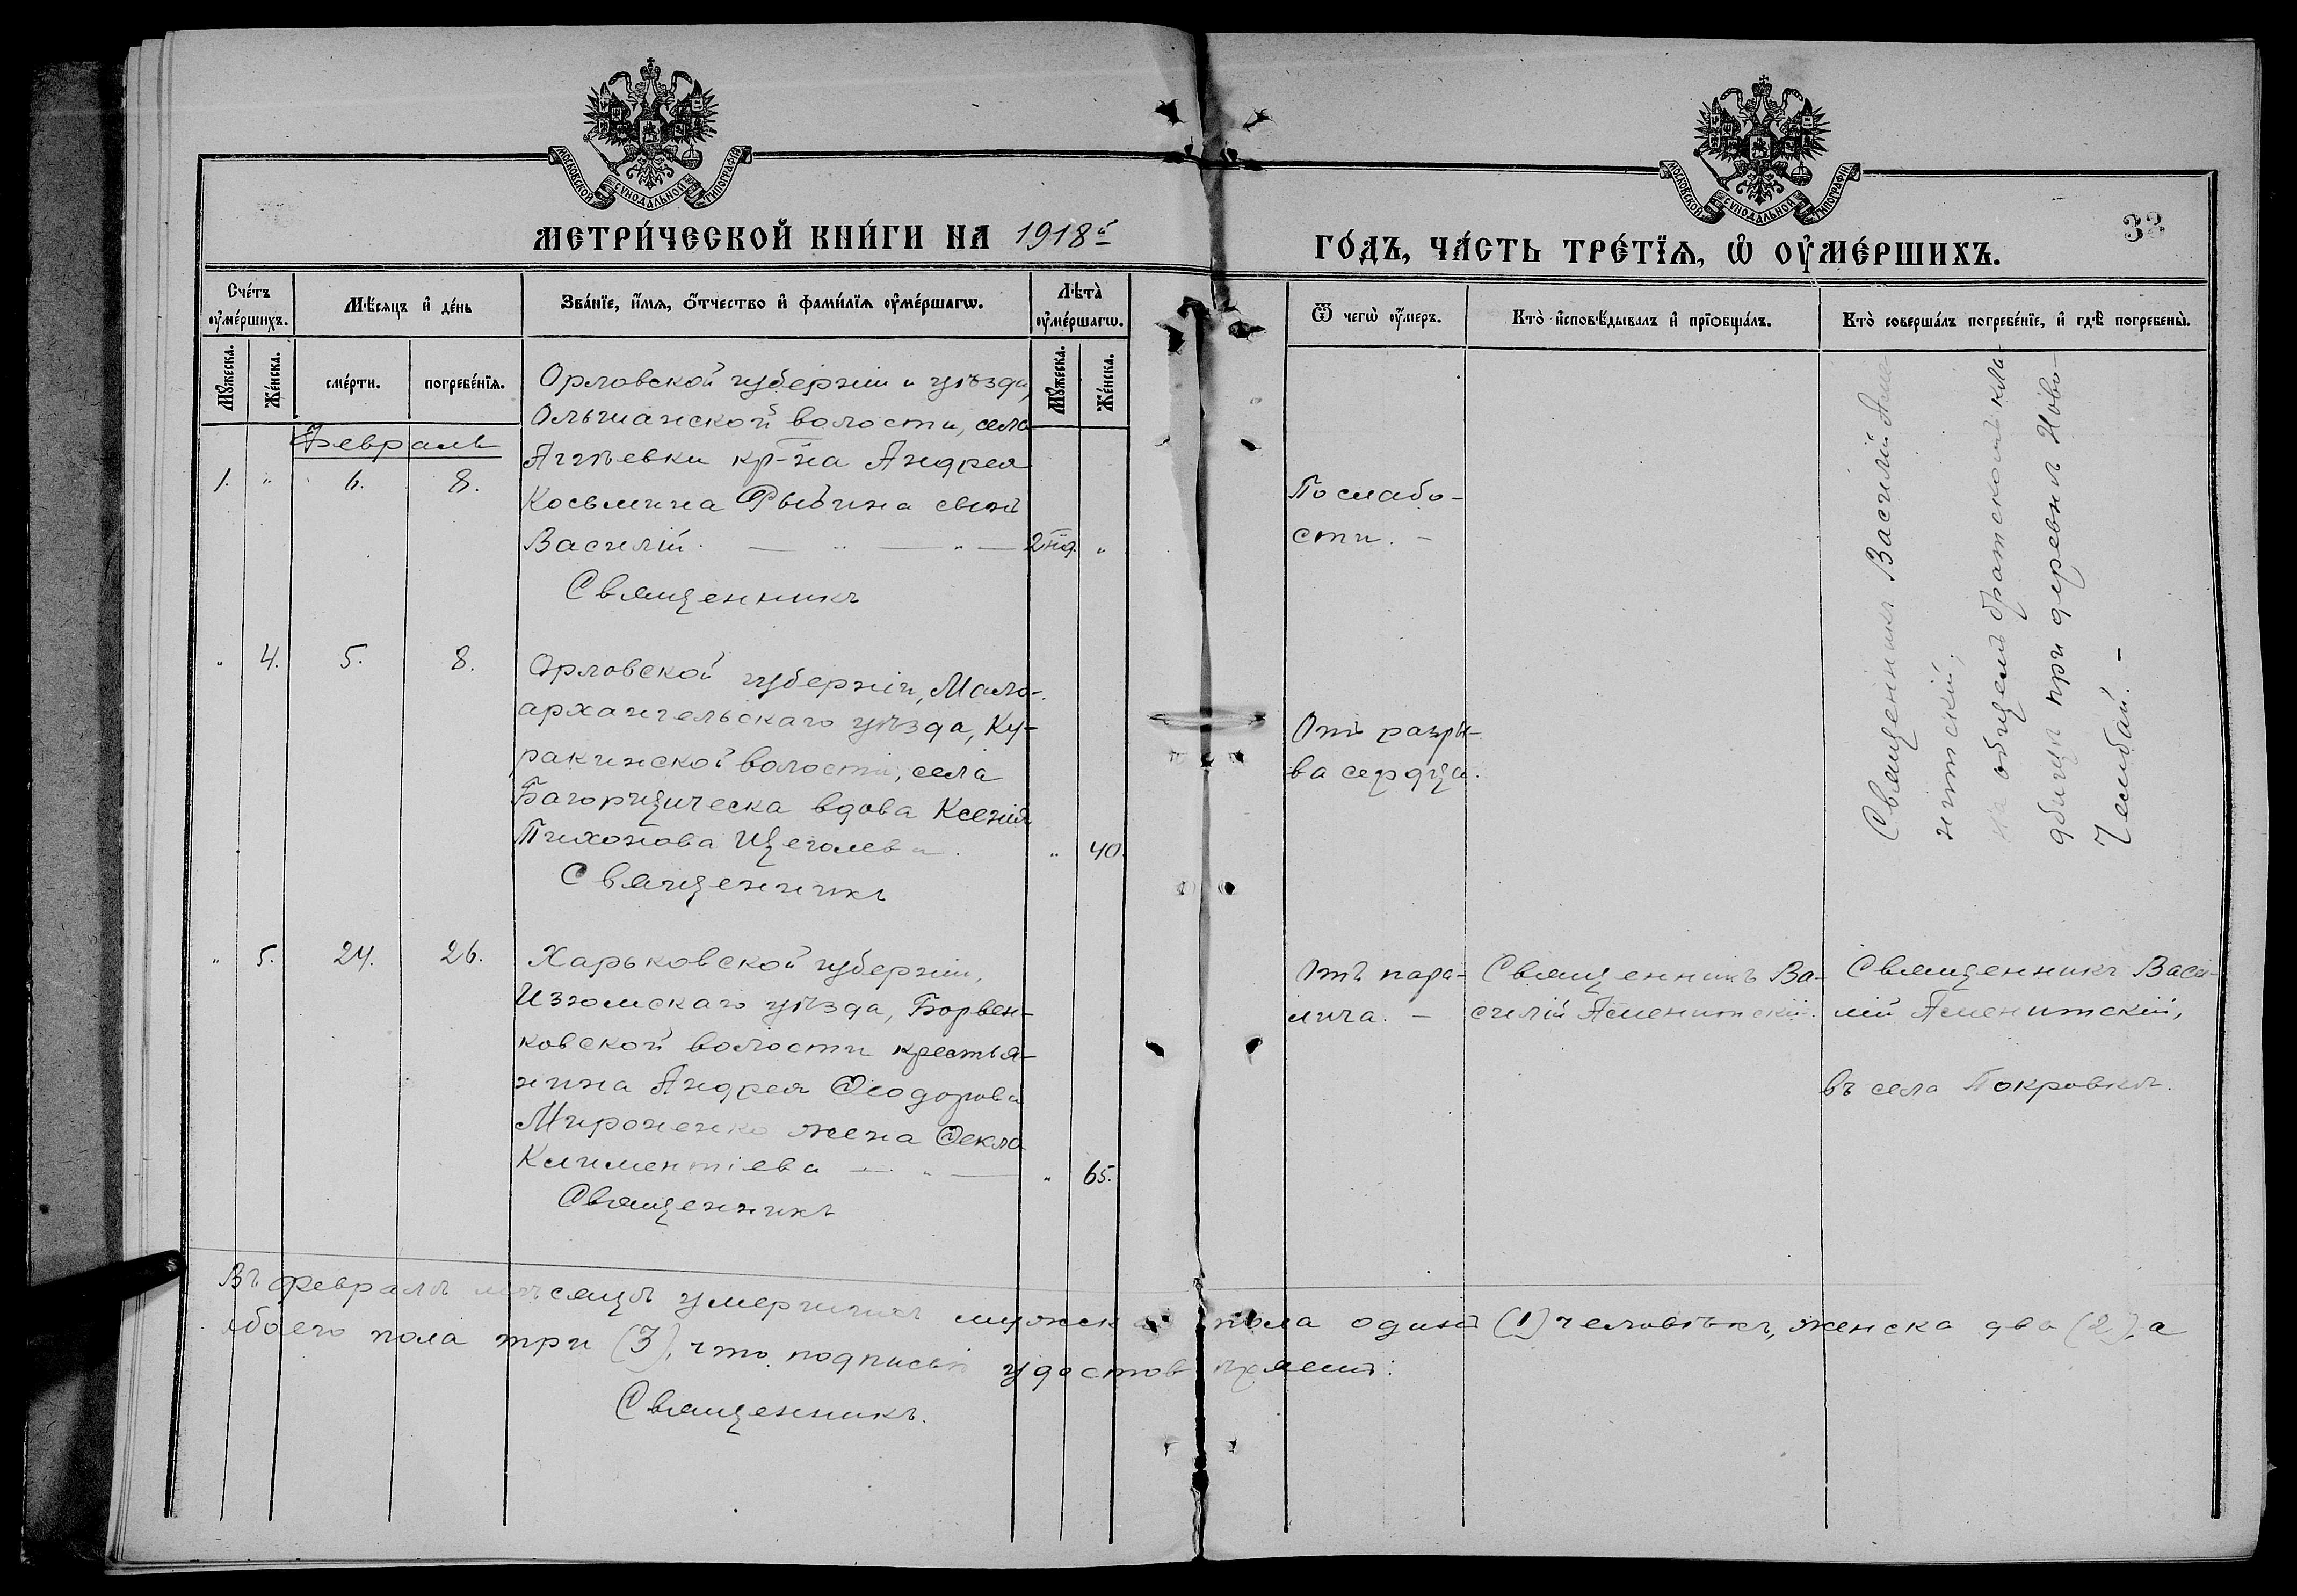 МОСКОВСКОЙ СУНОДАЛЬНОЙ ТИПОГРАФІИ
МОСКОВСКОЙ СУНОДАЛЬНОЙ ТИПОГРАФІИ
МЕТРИ́ЧЕСКОЙ КНИ́ГИ НА 1918й
ГО́ДЪ, ЧА́СТЬ ТРЕ́ТЇѦ, Ѡ҆ ОУ҆МЕ́РШИХЪ.
33
Сче́тъ оу҆ме́ршихъ.
Мѣ́сяцъ и҆ де́нь
Зва́нїе, и҆́мѧ, ѻ҆́тчество и҆ фами́лїѧ оу҆ме́ршагѡ.
Лѣта̀ оу҆ме́ршагѡ.
Ѿ чегѡ̀ оу҆́меръ.
Кто̀ и҆сповѣ́дывалъ и҆ прїѡбща́лъ.
Кто̀ соверша́лъ погребе́нїе, и҆ гдѣ̀ погребены̀.
Мꙋ́жеска.
Же́нска.
сме́рти.
погребе́нїѧ.
Мꙋ́жеска.
Же́нска.
Февраль
1. " 6. 8.
Орловской губерніи и уѣзда,
Ольшанской волости, села
Агѣевки кр-на Андрея
Косьмина Рыбина сынъ
Василій. — " — " — 2 нд. "
Священникъ
По слабо-
сти. —
Священникъ Василій Аме-
нитскій,
на общемъ братскомъ кла-
дбищѣ при деревнѣ Ново-
Чембай. —
" 4. 5. 8.
Орловской губерніи, Мало-
архангельскаго уѣзда, Ку-
ракинской волости, села
Богородическа вдова Ксенія
Тихонова Щеголева. " 40.
Священникъ
Отъ разры-
ва сердца.
" 5. 24. 26.
Харьковской губерніи,
Изюмскаго уѣзда, Борвен-
ковской волости крестья-
нина Андрея Ѳеодорова
Мироненко жена Ѳекла
Климентіева — " — " 65.
Священникъ
Отъ пара-
лича. —
Священникъ Ва-
силій Аменитскій.
Священникъ Васи-
лій Аменитскій,
въ села Покровкѣ.
Въ февралѣ мѣсяцѣ умершихъ мужска пола одинъ (1) человѣкъ, женска два (2), а
обоего пола три (3), что подписью удостовѣряемъ:
Священникъ.